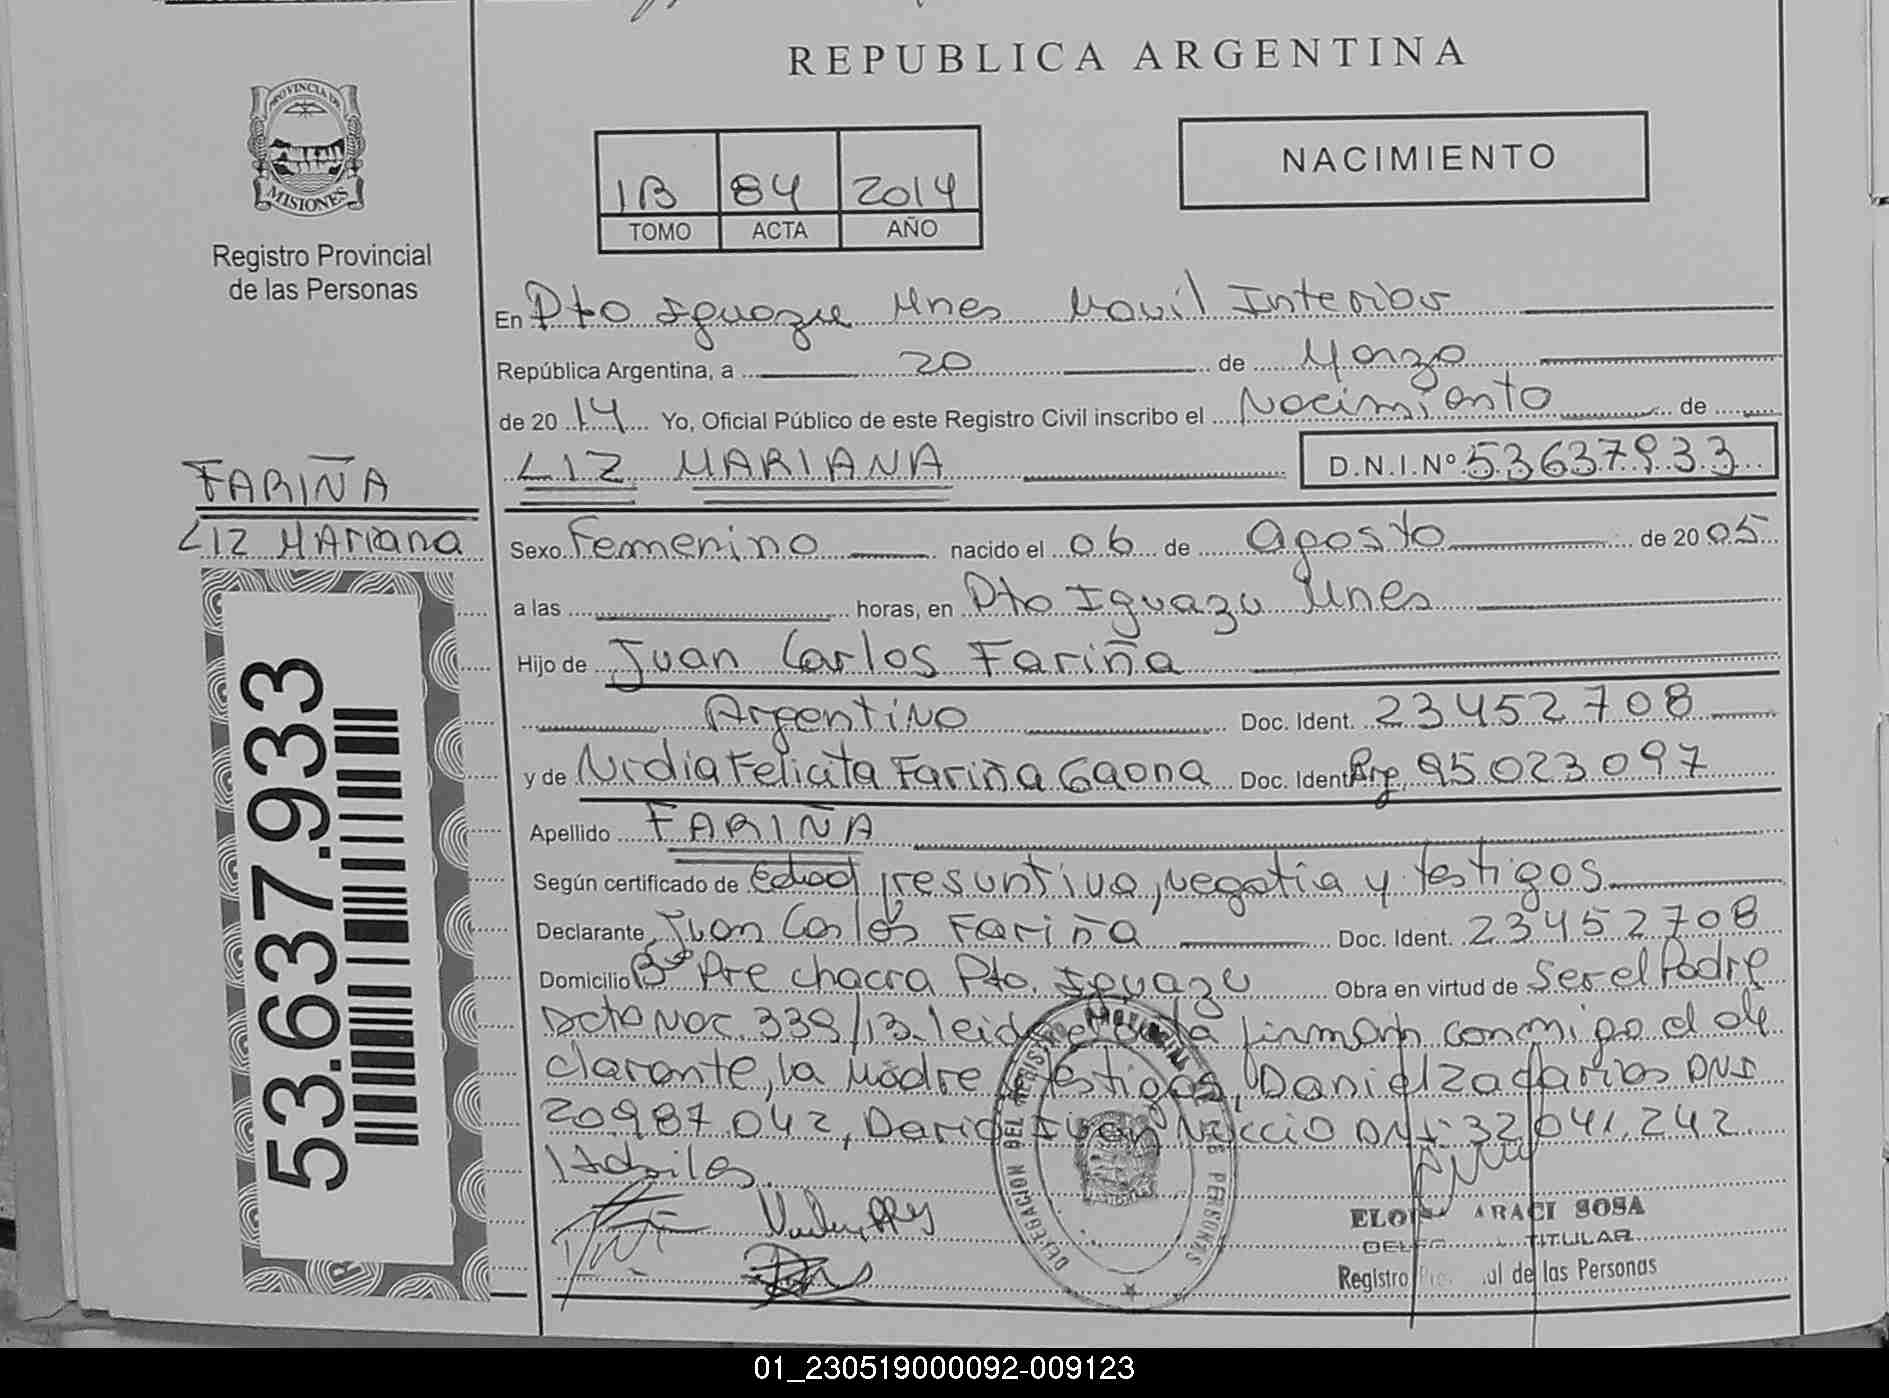 REPUBLICA ARGENTINA
PROVINCIA DE
MISIONES
Registro Provincial
de las Personas
1B 84 2014
TOMO ACTA AÑO
NACIMIENTO
En Pto Iguazu Mnes Movil Interior
República Argentina, a 20 de Marzo
de 2014 Yo, Oficial Público de este Registro Civil inscribo el Nacimiento de
LIZ MARIANA D.N.I.Nº 53637933
FARIÑA
LIZ MAriana
Sexo Femenino nacido el 06 de Agosto de 2005
a las horas, en Pto Iguazu Mnes
Hijo de Juan Carlos Fariña
Argentino Doc. Ident. 23452708
y de Nidia Felicita Fariña Gaona Doc. Ident. 95023097
Apellido FARIÑA
Según certificado de edad presuntiva, negatia y testigos
Declarante Juan Carlos Fariña Doc. Ident. 23452708
Domicilio Bº Pre chacra Pto. Iguazu Obra en virtud de Ser el Padre
Dcto Nac. 339/13. leida el acta firman conmigo el de
clarante, la Madre testigos, Daniel Zacarias DNI
20987042, Dario Ivan DNI: 32041.242
Habiles.
53.637.933
DELEGACION DEL REGISTRO PROVINCIAL DE PERSONAS
ARACI SOSA
TITULAR
Registro de las Personas
01_230519000092-009123